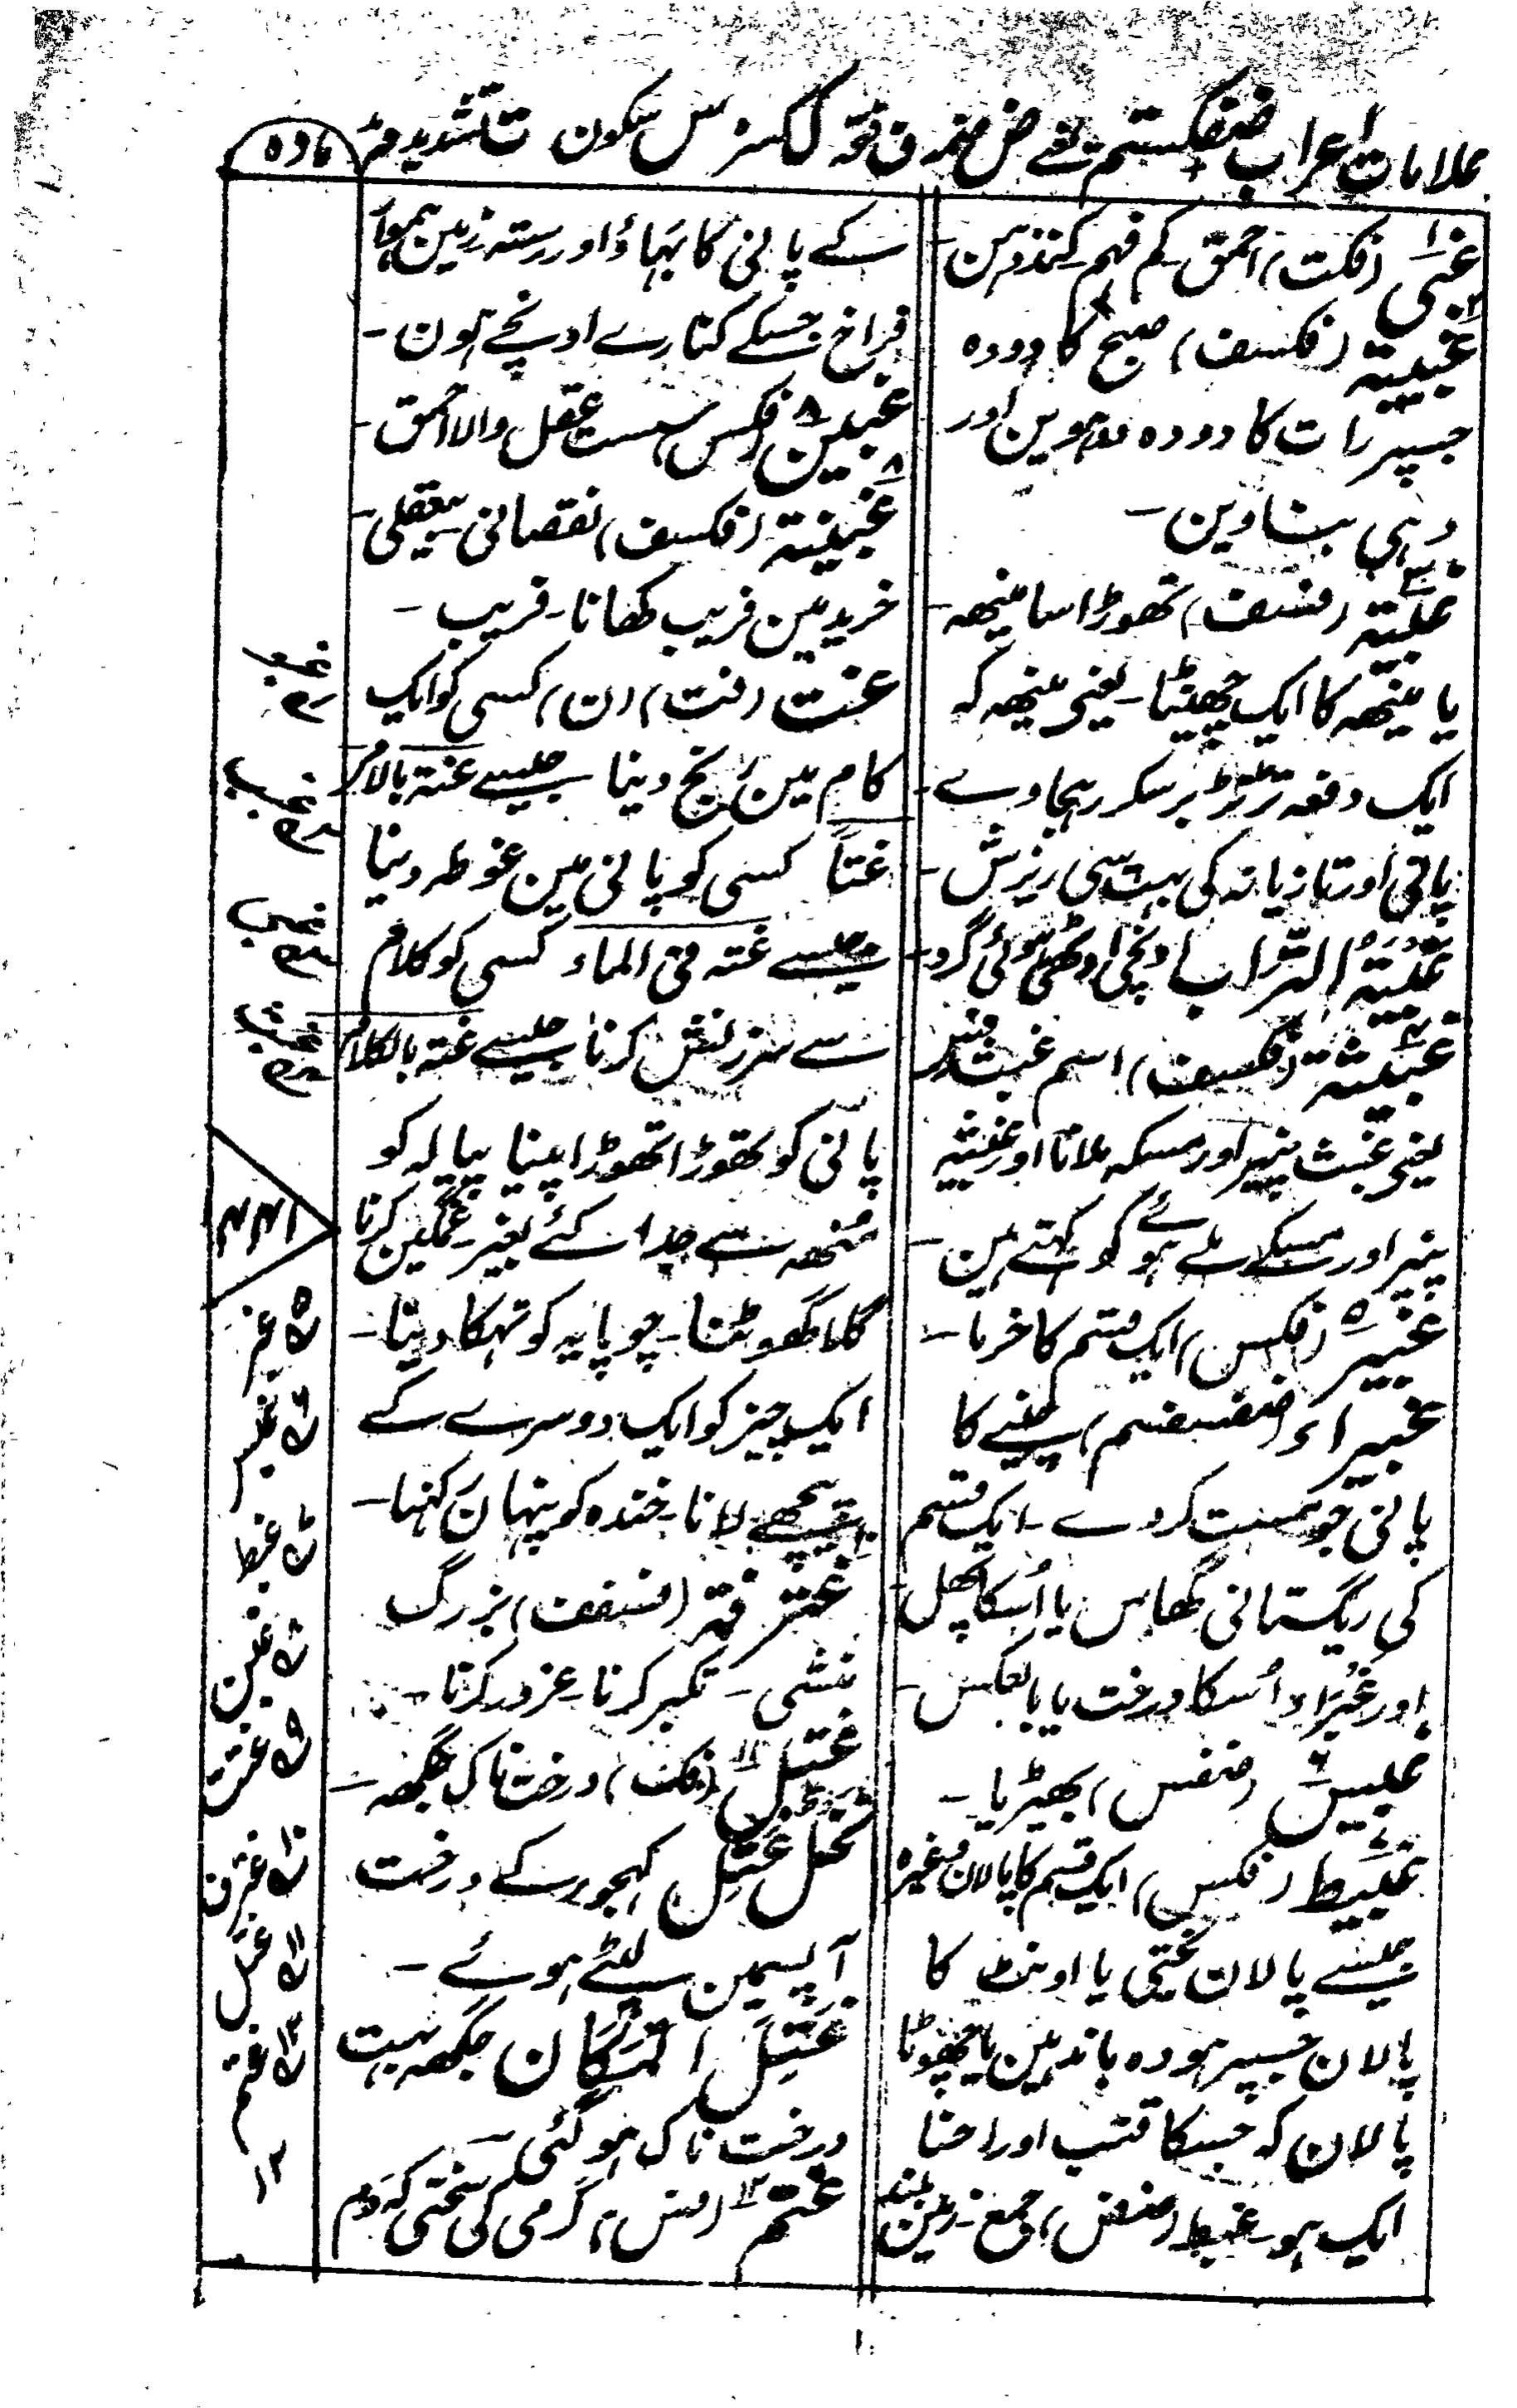 علامات اعراب ضفکستم یعنے ض ضمہ ف فتہ ک کسرہ س سکون ت تشدید م مد
مادہ
غبی (فکت) احمق کم فہم کند ذہن -
غبیبۃ (فکسف) صبح کا دودہ
جسپر رات کا دودہ دوہوین اور
دہی بناوین -
غبیۃ (فسف) تھوڑا سا مینھہ -
یا مینھہ کا ایک چھینٹا - یعنی مینھہ کہ
ایک دفعہ تڑتڑ برسکر رہجاوے -
پانی اور تازیانہ کی بہت سی ریزش -
غبیۃ التراب اونچی اوٹھی ہوئی گرد -
غبیثۃ (فکسف) اسم غبث
یعنی غبث پنیر اور مسکہ ملانا اور غبیثہ
پنیر اور مسکے ملے ہوئے کو کہتے ہین -
غبیر ۵ (فکس) ایک قسم کا خرما -
غبیراء (ضفسفم) چینے کا
پانی جو مست کردے - ایک قسم
کی ریگستانی گھاس یا اُسکا پھل
اور غبراء اُسکا درخت یا بالعکس -
غبیس ۶ (ضفس) بھیڑیا -
غبیط (فکس) ایک قسم کا پالان وغیرہ
جیسے پالان بختی یا اونٹ کا
پالان جسپر ہودہ باندہین یا چھوٹا
پالان کہ جسکا قتب اور احنا
ایک ہو - غبط (ضض) جمع - زمین بلند
کے پانی کا بہاؤ اور رستہ زمین ہموار
فراخ جسکے کنارے اونچے ہون -
غبین ۸ (فکس) سست عقل والا احمق -
غبینۃ (فکسف) نقصانی - بیعقلی -
خرید مین فریب کھانا - فریب -
غت (فت) (ن) کسی کو ایک
کام مین رنج دینا جیسے غتہ بالامر
غتاً کسی کو پانی مین غوطہ دینا
جیسے غتہ فی الماء کسی کو کلام
سے سرزنش کرنا جیسے غتہ بالکلام
پانی کو تھوڑا تھوڑا پینا پیالہ کو
منھہ سے جدا کئے بغیر - غمگین کرنا
گلا گھوٹنا - چوپایہ کو تہکا دینا -
ایک چیز کو ایک دوسرے کے
پیچھے لانا - خندہ کو پنہان کرنا -
غترفۃ (فسفف) بزرگ
منشی - تکبر کرنا - غرور کرنا -
غتل ۱۱ (فکت) درختناک جگھہ -
نخل غتل کہجور کے درخت
آپسمین لپٹے ہوئے -
غتل المکان جگھہ بہت
درخت ناک ہو گئی -
غتم ۱۲ (فس) گرمی کی سختی کہ دم
غبو
غبب
غبب
غبث
غبر
غبس
غبط
غبن
غت
غترف
غتل
غتم
۱۲